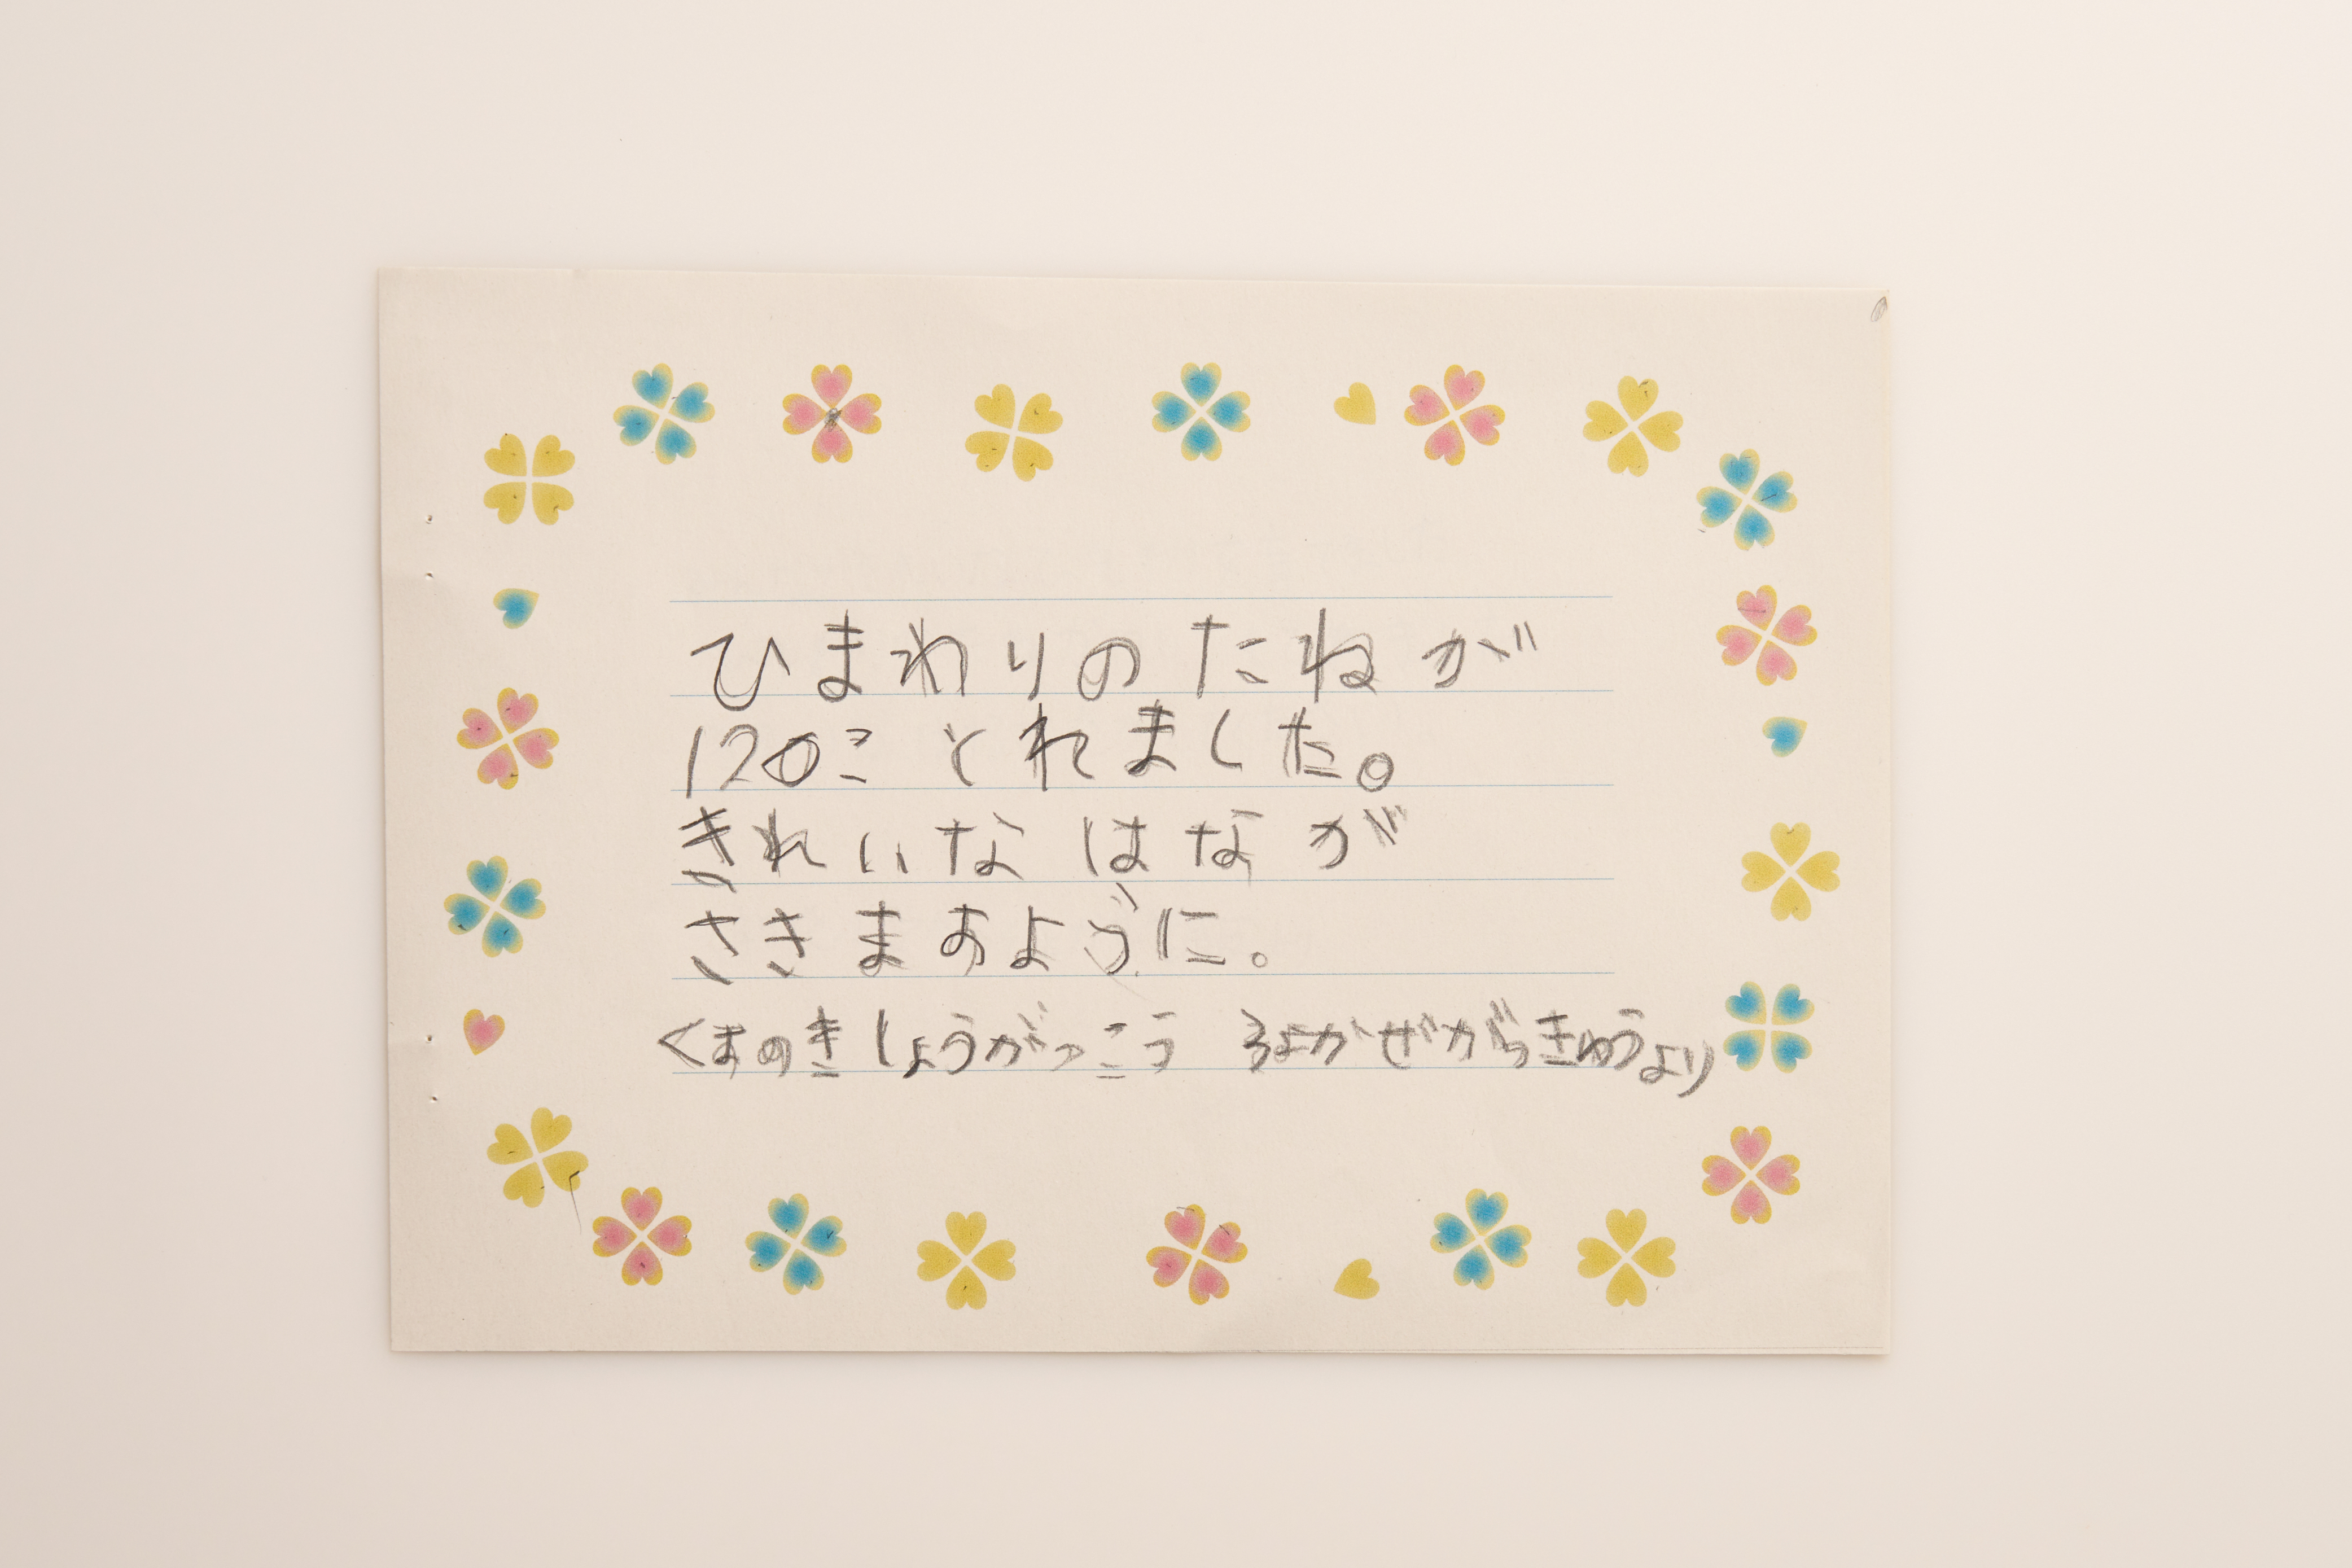 ひまわりのたねが
120ことれました。
きれいなはながが
さきますように。
くまのきしょうがっこう そよかぜがっきゅうより